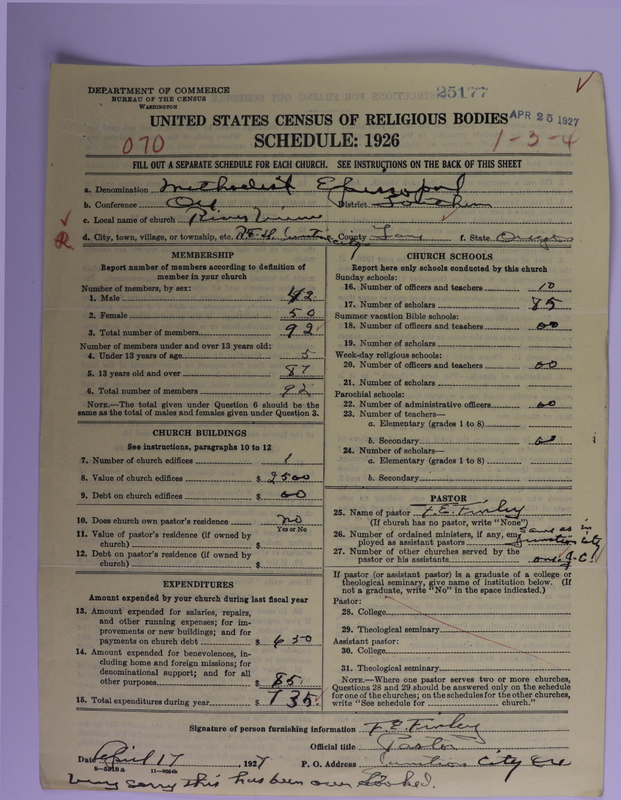 DEPARTMENT OF COMMERCE
BUREAU OF THE CENSUS
WASHINGTON
25177
APR 25 1927
UNITED STATES CENSUS OF RELIGIOUS BODIES
070
SCHEDULE: 1926
1-3-4
FILL OUT A SEPARATE SCHEDULE FOR EACH CHURCH. SEE INSTRUCTIONS ON THE BACK OF THIS SHEET
a. Denomination Methodist Episcopal
b. Conference Ore District Southern
c. Local name of church River
d. City, town, village, or township, etc. Junction City County Lane f. State Oregon
MEMBERSHIP
Report number of members according to definition of
member in your church
Number of members, by sex:
1. Male 42
2. Female 50
3. Total number of members 92
Number of members under and over 13 years old:
4. Under 13 years of age 5
5. 13 years old and over 87
6. Total number of members 92
NOTE.—The total given under Question 6 should be the
same as the total of males and females given under Question 3.
CHURCH BUILDINGS
See instructions, paragraphs 10 to 12
7. Number of church edifices 1
8. Value of church edifices $ 2500
9. Debt on church edifices $ 00
10. Does church own pastor's residence no
Yes or No
11. Value of pastor's residence (if owned by
church) $
12. Debt on pastor's residence (if owned by
church) $
EXPENDITURES
Amount expended by your church during last fiscal year
13. Amount expended for salaries, repairs,
and other running expenses; for im-
provements or new buildings; and for
payments on church debt $ 650
14. Amount expended for benevolences, in-
cluding home and foreign missions; for
denominational support; and for all
other purposes $ 85
15. Total expenditures during year $ 735
CHURCH SCHOOLS
Report here only schools conducted by this church
Sunday schools:
16. Number of officers and teachers 10
17. Number of scholars 85
Summer vacation Bible schools:
18. Number of officers and teachers 00
19. Number of scholars
Week-day religious schools:
20. Number of officers and teachers 00
21. Number of scholars
Parochial schools:
22. Number of administrative officers 00
23. Number of teachers—
a. Elementary (grades 1 to 8)
b. Secondary 00
24. Number of scholars—
a. Elementary (grades 1 to 8)
b. Secondary
PASTOR
25. Name of pastor F. E. Finley
(If church has no pastor, write "None")
26. Number of ordained ministers, if any, em-
ployed as assistant pastors same as in Junction City
27. Number of other churches served by the
pastor or his assistants one J.C.
If pastor (or assistant pastor) is a graduate of a college or
theological seminary, give name of institution below. (If
not a graduate, write "No" in the space indicated.)
Pastor:
28. College
29. Theological seminary
Assistant pastor:
30. College
31. Theological seminary
NOTE.—Where one pastor serves two or more churches,
Questions 28 and 29 should be answered only on the schedule
for one of the churches; on the schedules for the other churches,
write "See schedule for church."
Signature of person furnishing information F. E. Finley
Official title Pastor
Date April 17, 1927 P. O. Address Junction City Ore
8—5818 a 11—9024b
Very sorry this has been over looked.